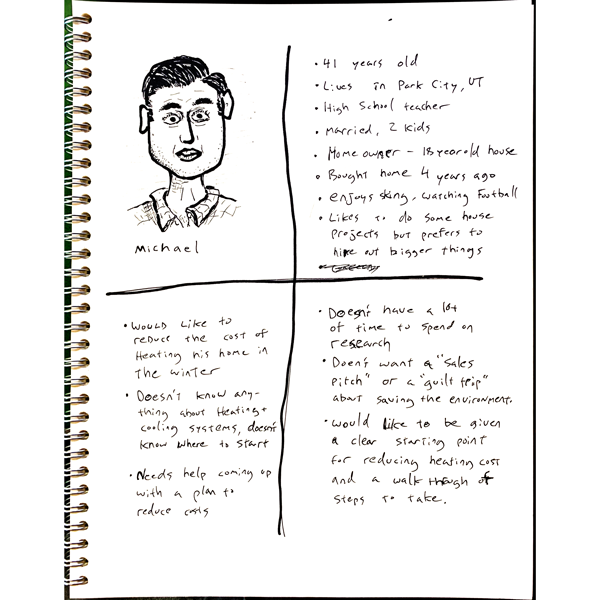 Michael
• 41 years old
• Lives in Park City, UT
• High School teacher
• married, 2 kids
• Home owner – 18 year old house
• Bought home 4 years ago
• enjoys sking, watching Football
• Likes to do some house
projects but prefers to
hire out bigger things
• Would like to
reduce the cost of
Heating his home in
the winter
• Doesn't know any-
thing about Heating +
cooling systems, doesn't
know where to start
• Needs help coming up
with a plan to
reduce costs
• Doesn't have a lot
of time to spend on
research
• Doen't want a "sales
pitch" or a "guilt trip"
about saving the environment.
• would like to be given
a clear starting point
for reducing heating cost
and a walk though of
steps to take.